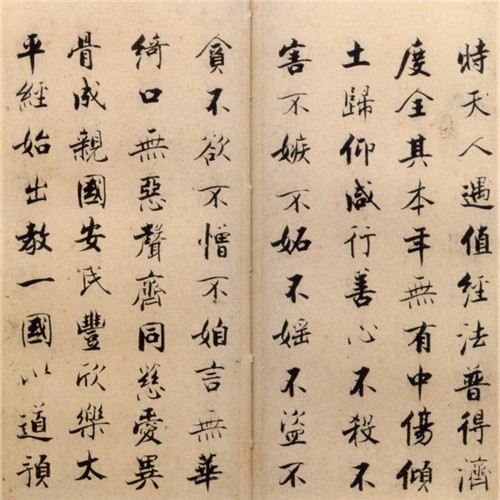 時天人遇值經法普得濟
度全其本年無有中傷傾
土歸仰咸行善心不殺不
害不嫉不妬不婬不盜不
貪不欲不憎不姤言無華
綺口無惡聲齊同慈愛異
骨成親國安民豐欣樂太
平經始出教一國以道預